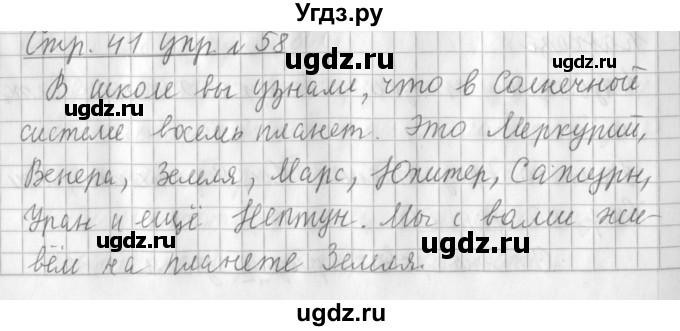 Угдз.ру
Стр. 41 упр. № 58
В школе вы узнали, что в Солнечный
системе восемь планет. Это Меркурий,
Венера, Земля, Марс, Юпитер, Сатурн,
Уран и ещё Нептун. Мы с вами жи-
вём на планете Земля.
ugdz.ru
ugdz.ru
ugdz.ru
ugdz.ru
ugdz.ru
ugdz.ru
ugdz.ru
ugdz.ru